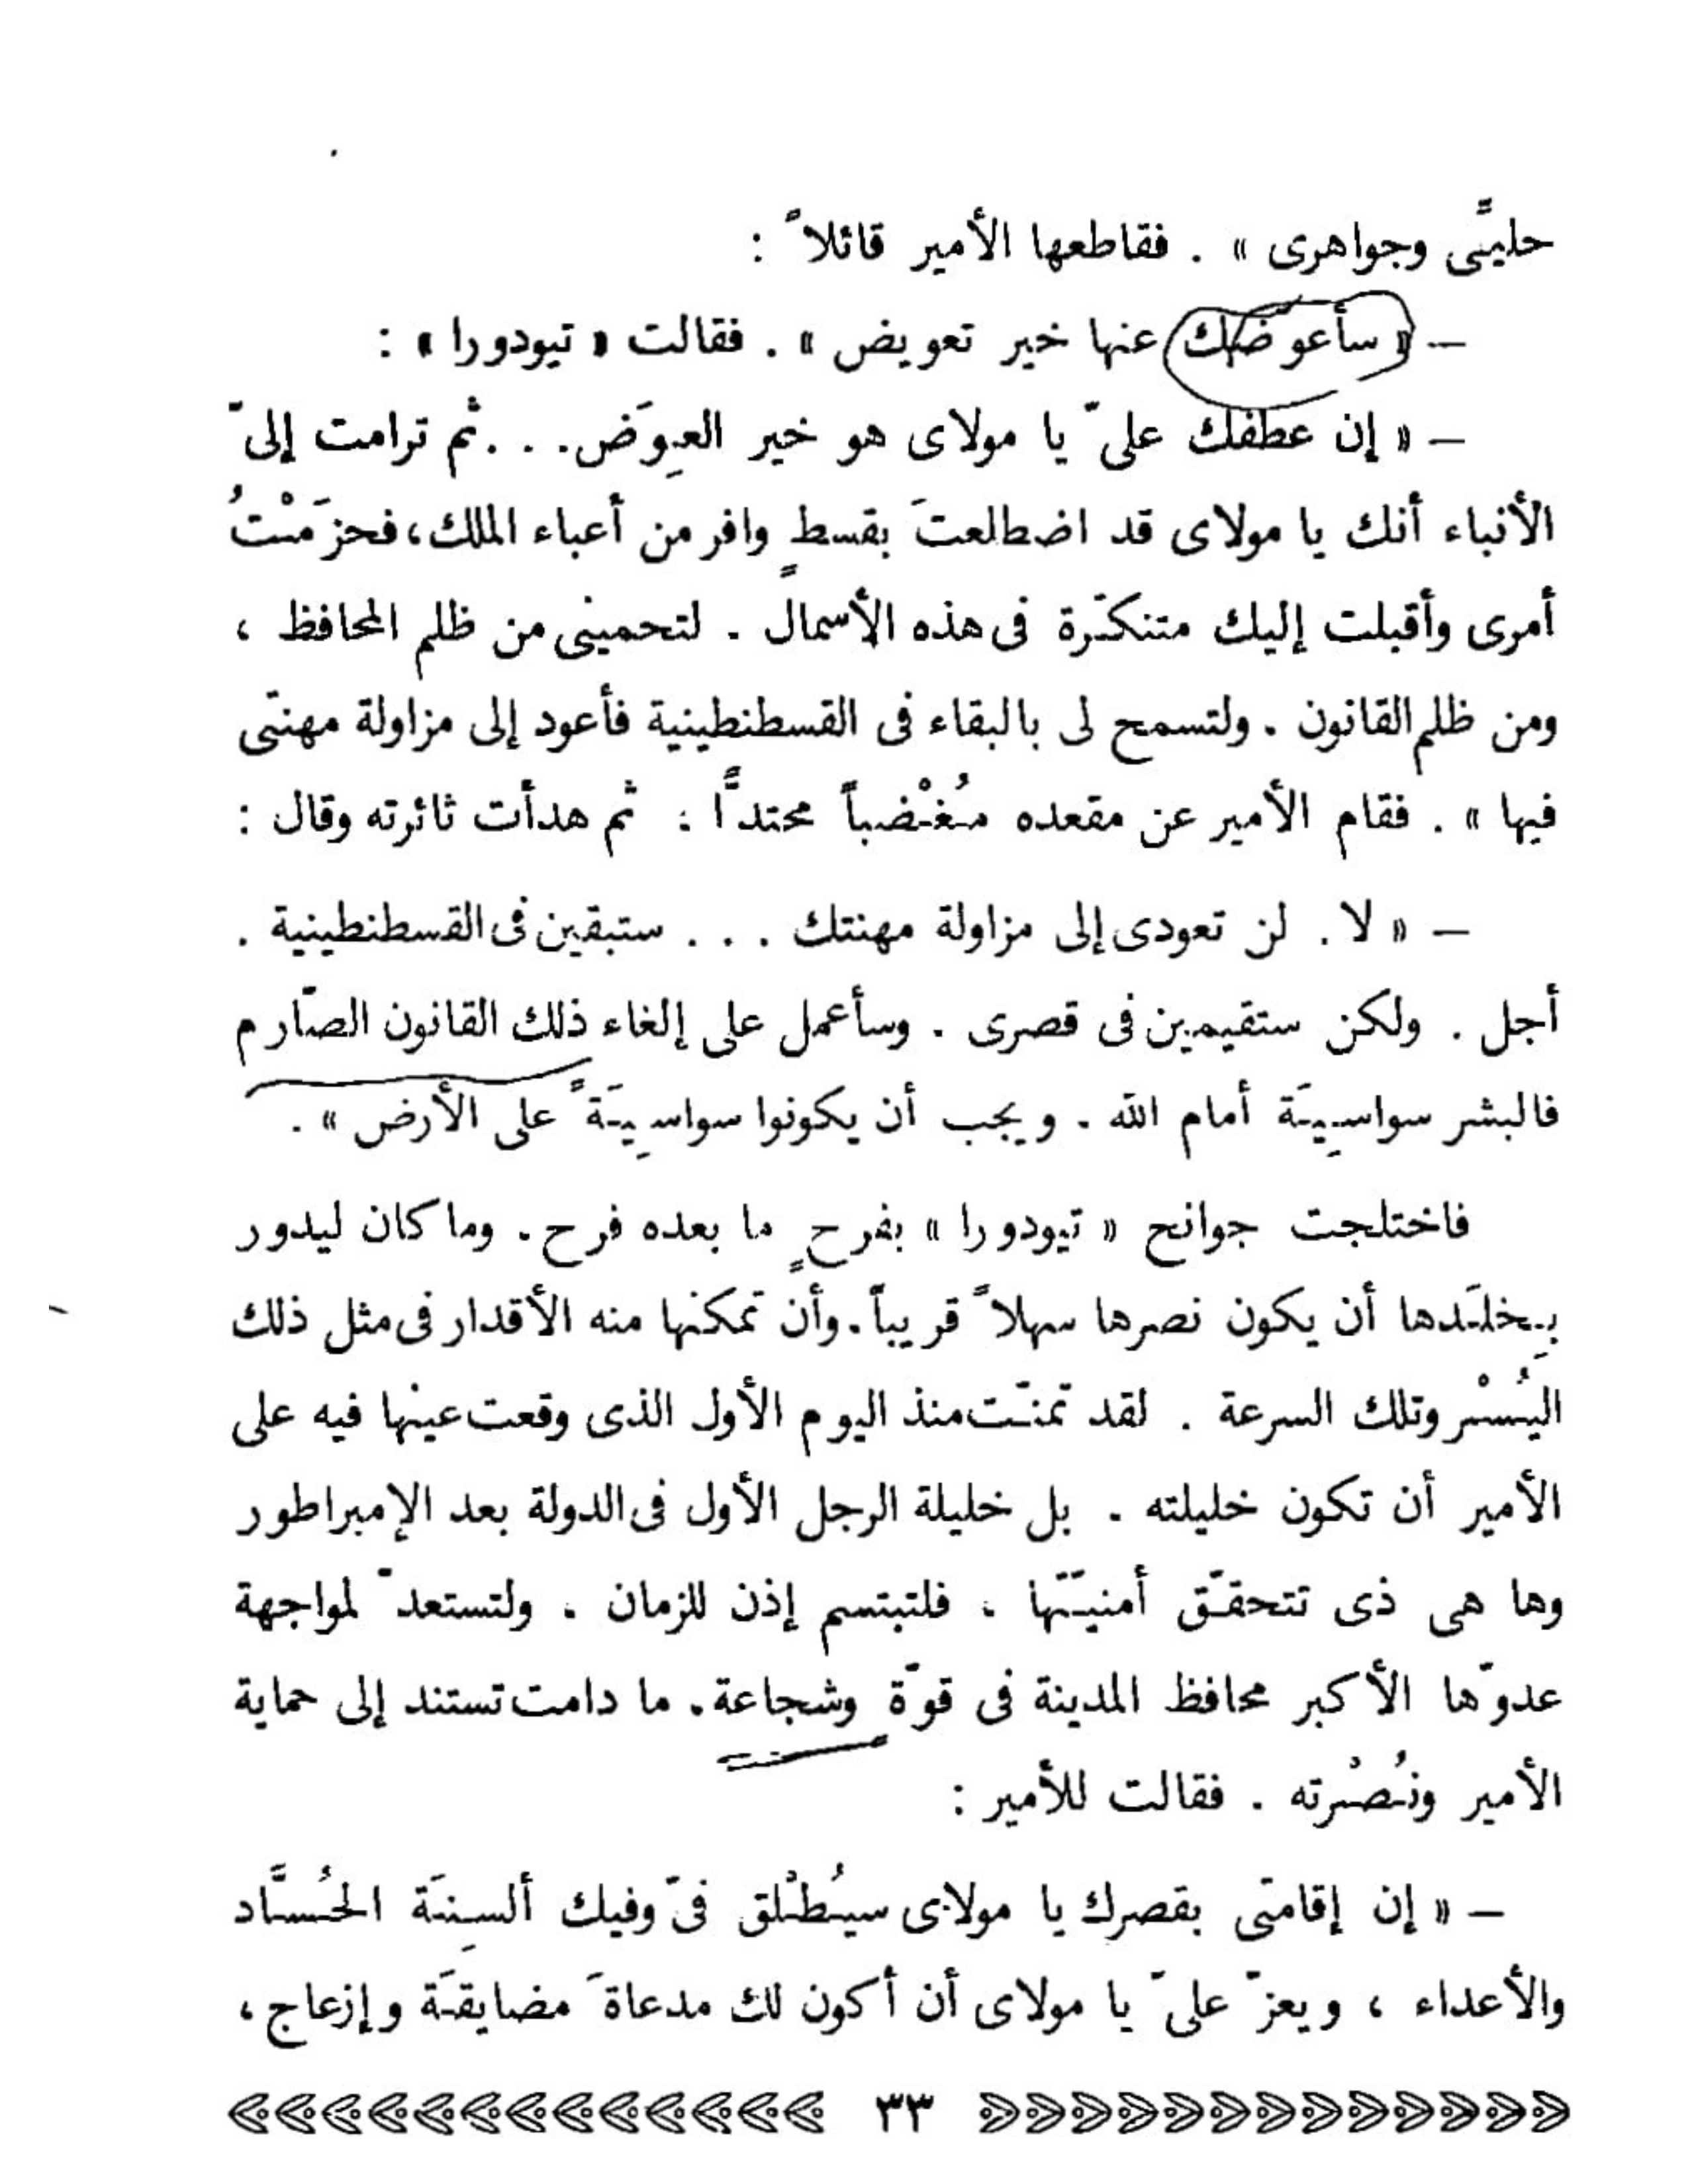 حليـَّى وجواهرى » . فقاطعها الأمير قائلاً :
— « سأعوّضك عنها خير تعويض » . فقالت « تيودورا » :
— « إن عطفك علىّ يا مولاى هو خير العِوَض. . . ثم ترامت إلىّ
الأنباء أنك يا مولاى قد اضطلعتَ بقسطٍ وافر من أعباء الملك، فحزَمْتُ
أمرى وأقبلت إليك متنكّرة فى هذه الأسمال . لتحمينى من ظلم المحافظ ،
ومن ظلم القانون . ولتسمح لى بالبقاء فى القسطنطينية فأعود إلى مزاولة مهنتى
فيها » . فقام الأمير عن مقعده مُغْضباً محتدًّا ؛ ثم هدأت ثائرته وقال :
— « لا . لن تعودى إلى مزاولة مهنتك . . . ستبقين فى القسطنطينية .
أجل . ولكن ستقيمين فى قصرى . وسأعمل على إلغاء ذلك القانون الصّارم
فالبشر سواسِيَة أمام الله . ويجب أن يكونوا سواسِيَةً على الأرض » .
فاختلجت جوانح « تيودورا » بفرحٍ ما بعده فرح . وما كان ليدور
بِخلَدها أن يكون نصرها سهلاً قريباً . وأن تمكنها منه الأقدار فى مثل ذلك
اليُسْر وتلك السرعة . لقد تمنّت منذ اليوم الأول الذى وقعت عينها فيه على
الأمير أن تكون خليلته . بل خليلة الرجل الأول فى الدولة بعد الإمبراطور
وها هى ذى تتحقّق أمنيّتها . فلتبتسم إذن للزمان . ولتستعدّ لمواجهة
عدوّها الأكبر محافظ المدينة فى قوّة وشجاعة . ما دامت تستند إلى حماية
الأمير ونُصْرته . فقالت للأمير :
— « إن إقامتى بقصرك يا مولاى سيُطْلق فىّ وفيك ألسِنَة الحُسَّاد
والأعداء ، ويعزّ علىّ يا مولاى أن أكون لك مدعاةَ مضايقَة وإزعاج ،
٣٣